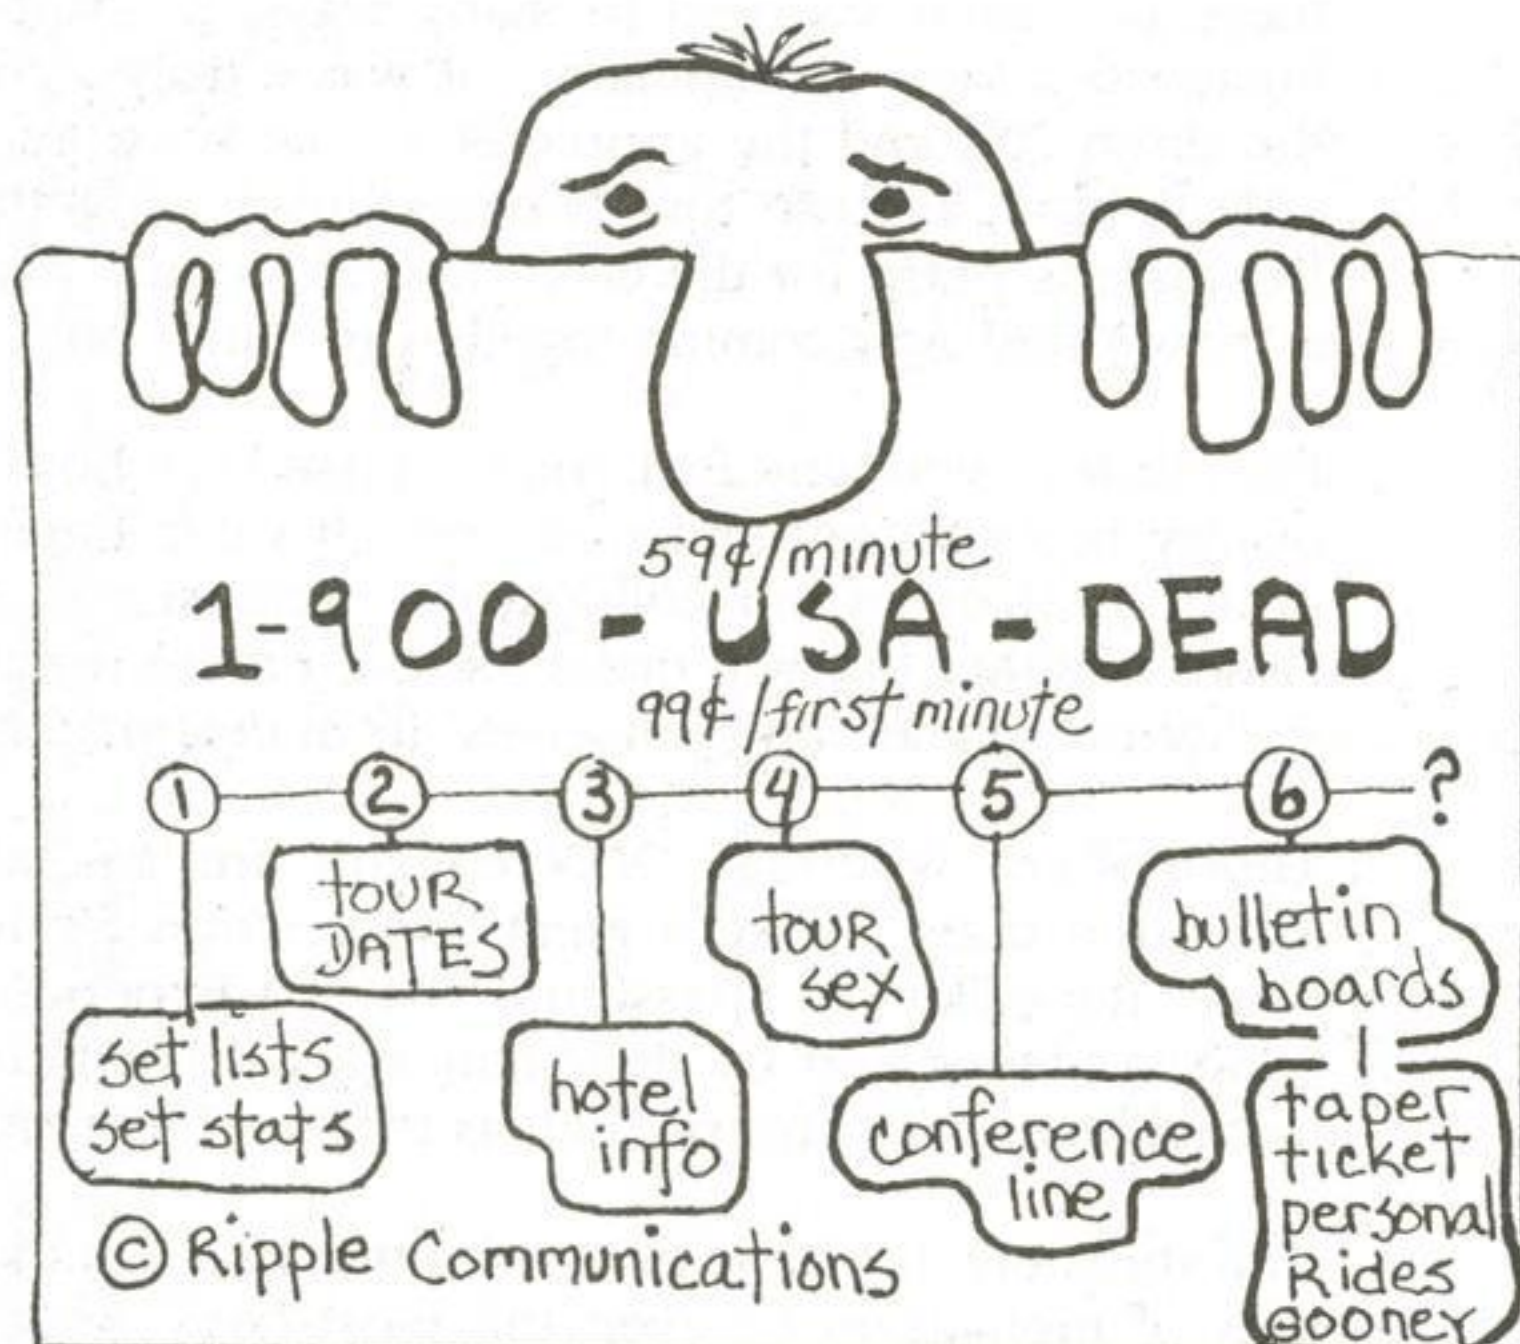 59¢/minute
1-900-USA-DEAD
99¢/first minute
1
2
3
4
5
6
?
set lists
set stats
tour
DATES
hotel
info
tour
sex
conference
line
bulletin
boards
taper
ticket
personal
Rides
gooney
© Ripple Communications